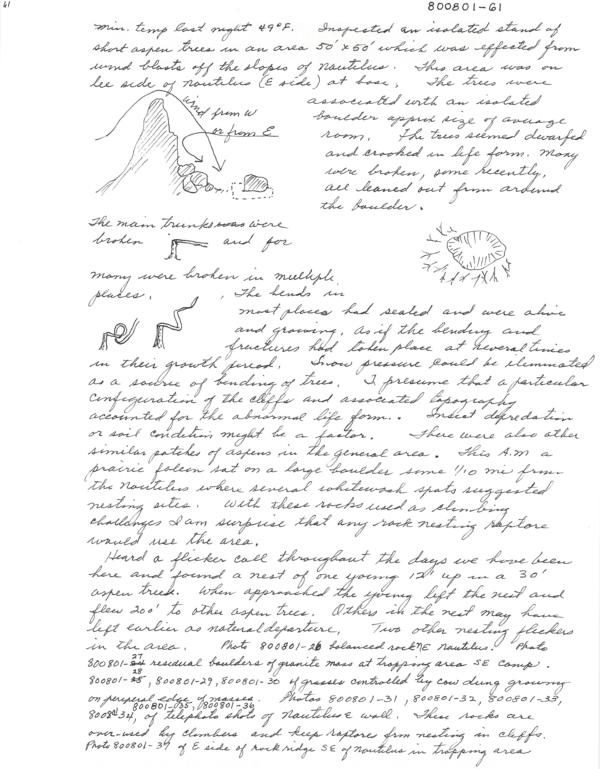 61
800801-61
Min. temp last night 49°F. Inspected an isolated stand of
short aspen trees in an area 50' x 50' which was effected from
wind blasts off the slopes of Nautilus. This area was on
lee side of Nautilus (E side) at base. The trees were
wind from W
or from E
associated with an isolated
boulder approx size of average
room. The trees seemed dwarfed
and crooked in life form. Many
were broken, some recently,
all leaned out from around
the boulder.
The main trunks was were
broken and for
many were broken in multipli
places. The bends in
most places had sealed and were alive
and growing, as if the bending and
fractures had taken place at several times
in their growth period. Snow pressure could be iliminated
as a source of bending of trees. I presume that a particular
configuration of the cliffs and associated topography
accounted for the abnormal life form. Insect depredation
or soil condition might be a factor. There were also other
similar patches of aspens in the general area. This A.M a
prairie folcon sat on a large boulder some 1/10 mi from
the Nautilus where several whitewash spots suggested
nesting sites. With these rocks used as climbing
challanges I am surprise that any rock nesting raptore
would use the area.
Heard a flicker call throughout the days we have been
here and found a nest of one young 12' up in a 30'
aspen tree. When approached the young left the nest and
flew 200' to other aspen trees. Others in the nest may have
left earlier as natural departure. Two other nesting flickers
in the area. Photo 800801-26 balanced rock E Nautilus. Photo
800801-27 residual boulders of granite mass at trapping area SE camp.
800801-28, 800801-29, 800801-30 of grasses controlled by cow dung growing
on edge of masses. Photos 800801-31, 800801-32, 800801-33,
800801-35, 800801-36
800801-34, of telephoto shots of Nautilus E wall. These rocks are
over-used by climbers and keep raptore from nesting in cliffs.
Photo 800801-37 of E side of rock ridge SE of Nautilus in trapping area